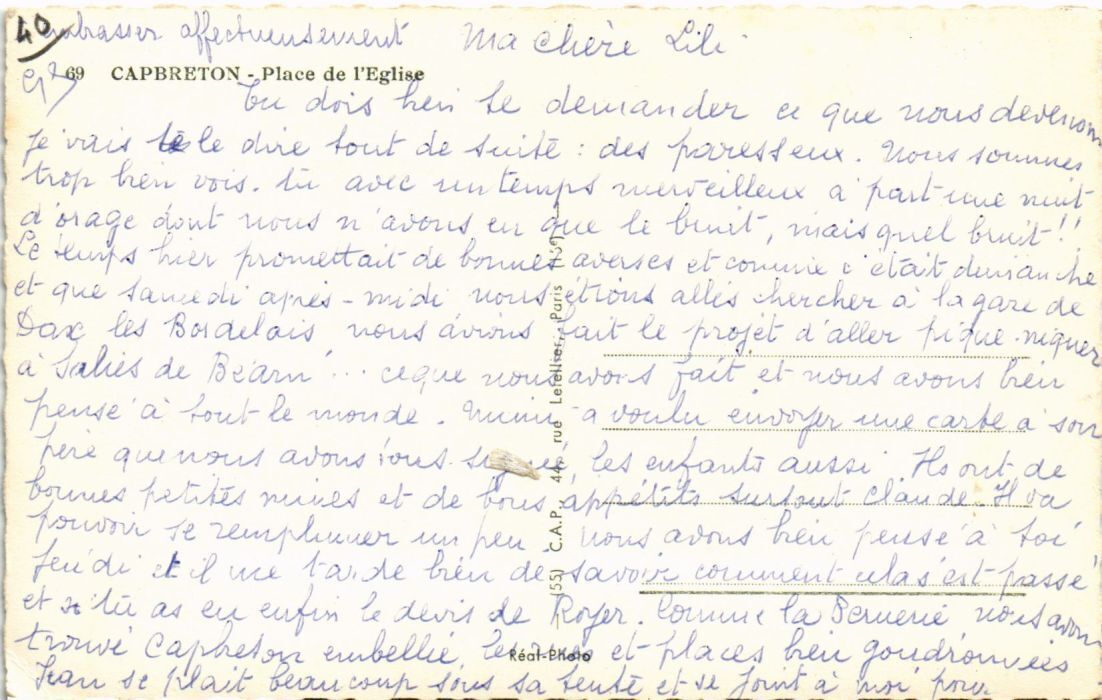 40
embrasser affectueusement Ma chère Lili
69 CAPBRETON - Place de l'Eglise
Tu dois bien te demander ce que nous devenons
je vais te le dire tout de suite : des paresseux. Nous sommes
trop bien vois-tu avec un temps merveilleux à part une nuit
d'orage dont nous n'avons eu que le bruit, mais quel bruit !!
Le temps hier promettait de bonnes averses et comme c'était dimanche
et que samedi après-midi nous étions allés chercher à la gare de
Dax les Bordelais nous avions fait le projet d'aller pique-niquer
à Saliès de Béarn ... ce que nous avons fait et nous avons bien
pensé à tout le monde. Mimi a voulu envoyer une carte à son
père que nous avons tous signé, les enfants aussi. Ils ont de
bonnes petites mines et de bons appétits surtout Claude. Il va
pouvoir se remplumer un peu. Nous avons bien pensé à toi
jeudi et il me tarde bien de savoir comment cela s'est passé
et si tu as eu enfin le devis de Royer. Comme la nous avons
trouvé Capbreton embellie, les rues et places bien goudronnées
Jean se plait beaucoup sous sa tente et se joint à moi pour
(55) C.A.P. 44, rue Letellier, Paris (15e)
Réal-Photo